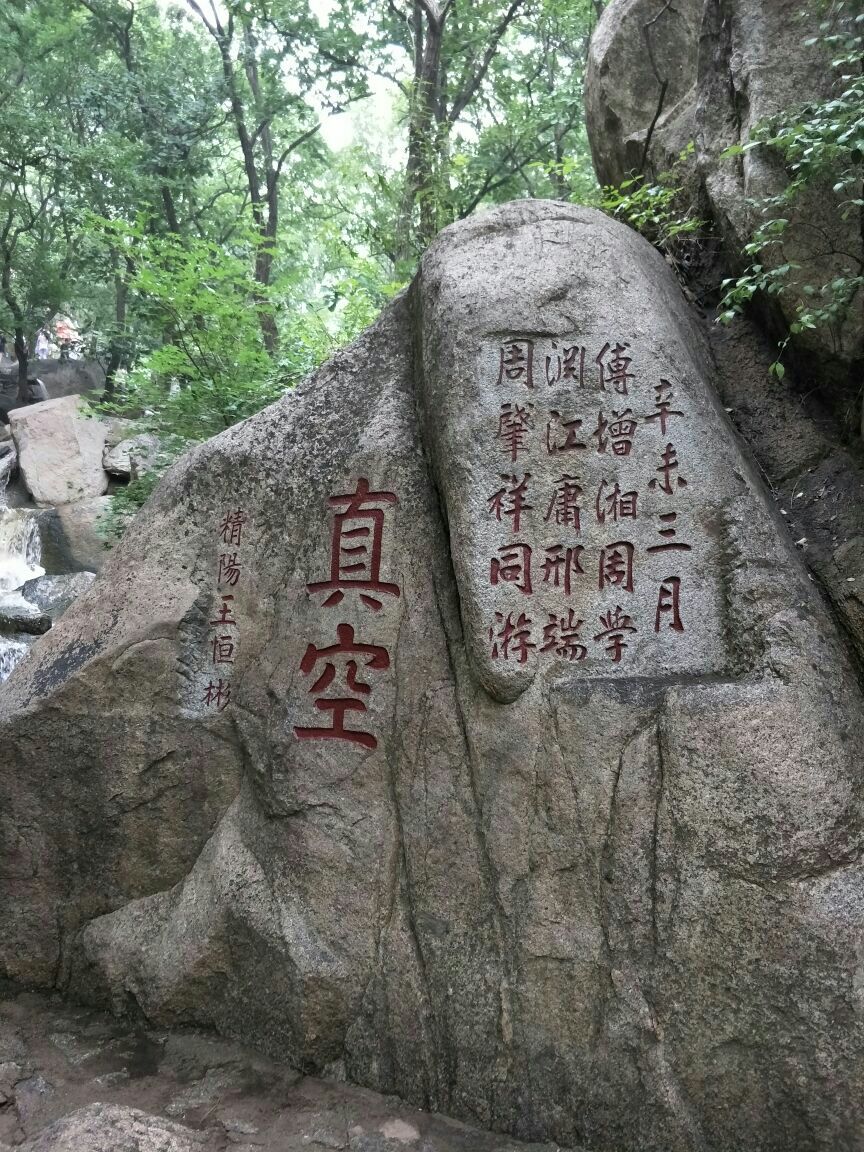 辛未三月
傅增湘周学
渊江庸邢端
周肇祥同游
真空
精陽王恒彬